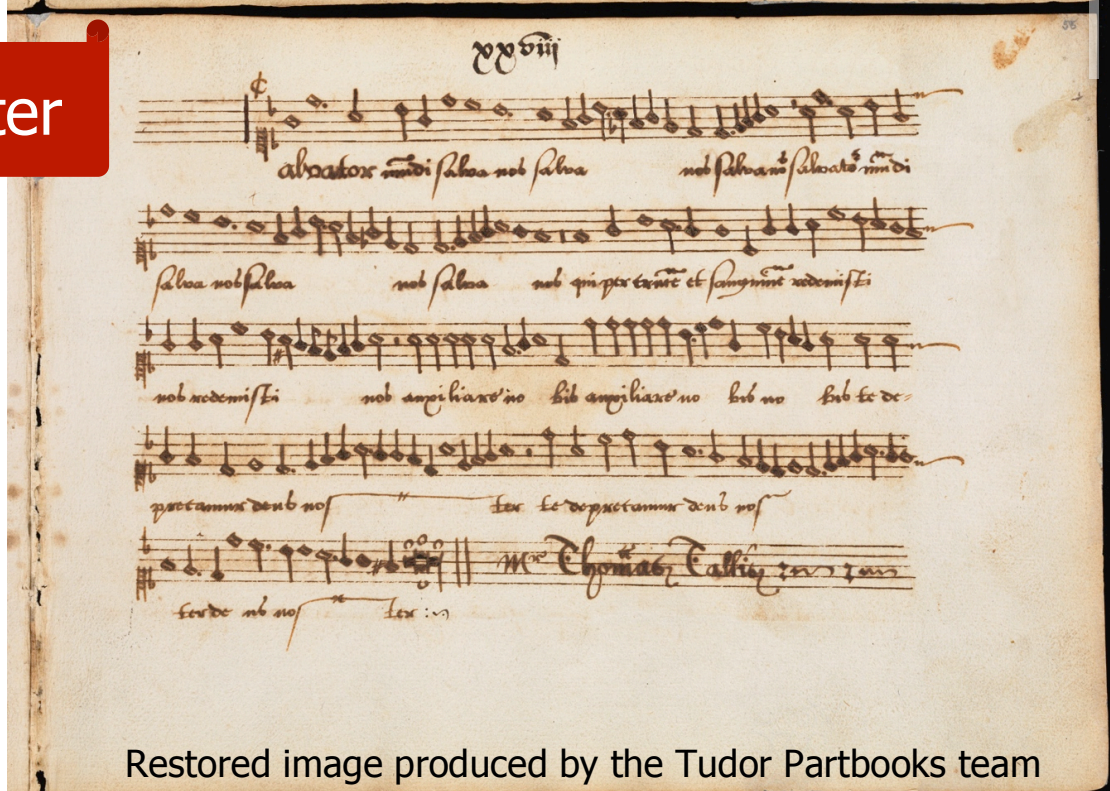 56
xxviii
ter
alvator mūdi salva nos salva nos salva nos salvator mūdi
salva nos salva nos salva nos qui per crucē et sanguinē redemisti
nos redemisti nos auxiliare no bis auxiliare no bis no bis te de-
precamur deus nos ter te deprecamur deus nos
Mr Thomas Tallis
ter de us nos ter
Restored image produced by the Tudor Partbooks team